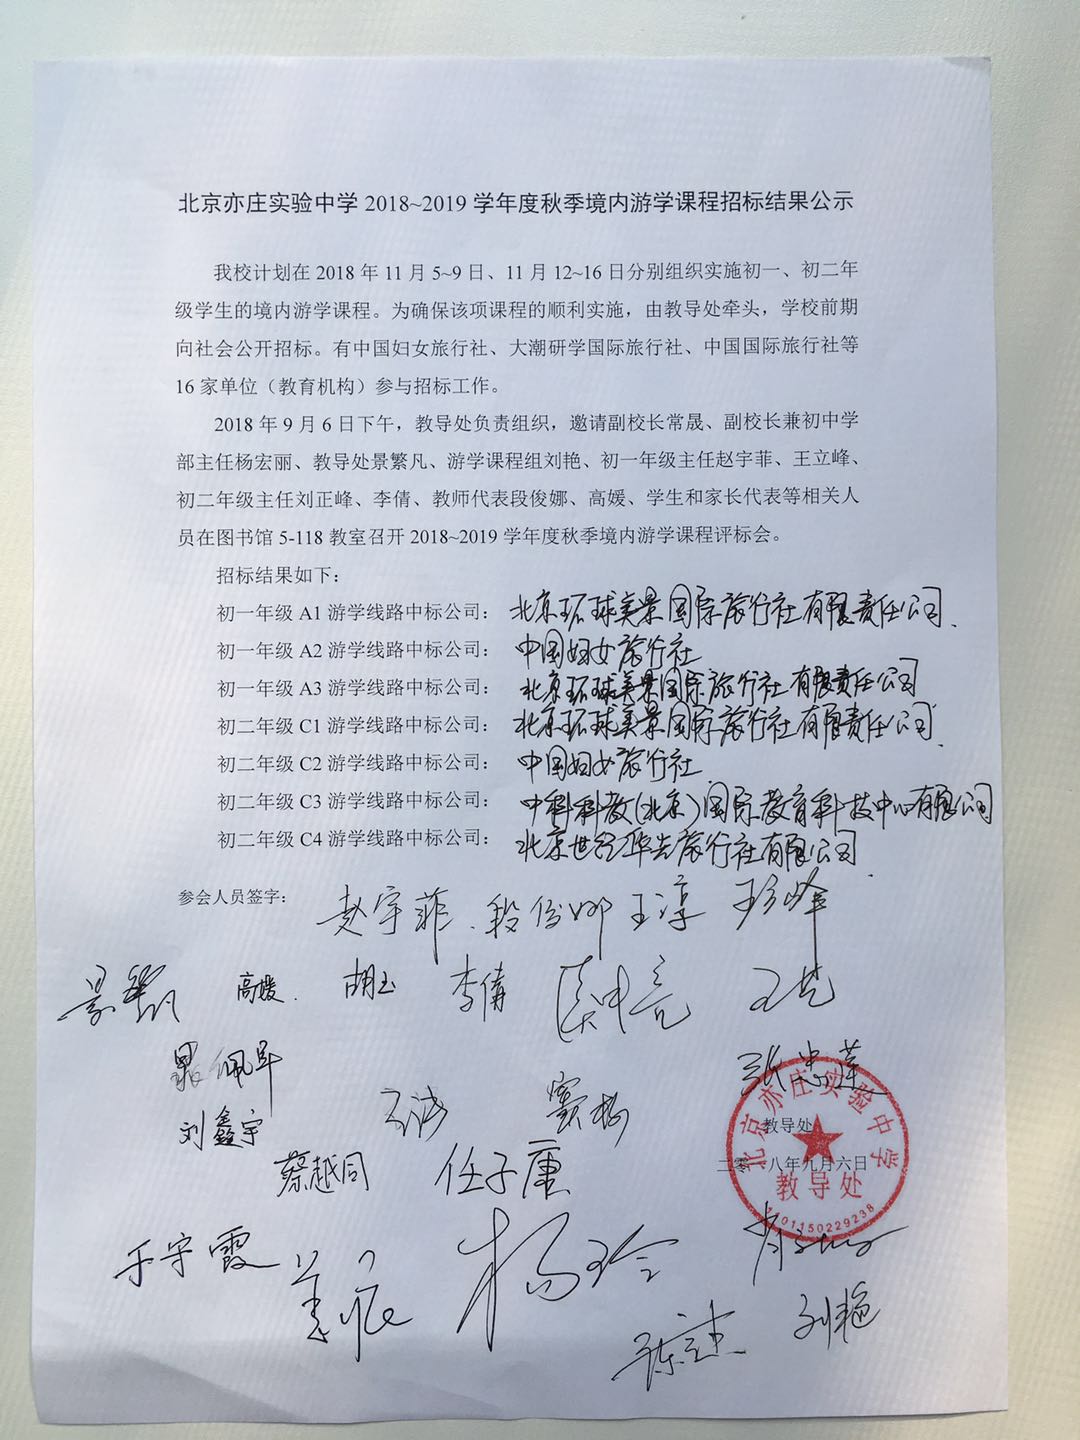 北京亦庄实验中学 2018~2019 学年度秋季境内游学课程招标结果公示
我校计划在 2018 年 11 月 5~9 日、11 月 12~16 日分别组织实施初一、初二年
级学生的境内游学课程。为确保该项课程的顺利实施，由教导处牵头，学校前期
向社会公开招标。有中国妇女旅行社、大潮研学国际旅行社、中国国际旅行社等
16 家单位（教育机构）参与招标工作。
2018 年 9 月 6 日下午，教导处负责组织，邀请副校长常晟、副校长兼初中学
部主任杨宏丽、教导处景繁凡、游学课程组刘艳、初一年级主任赵宇菲、王立峰、
初二年级主任刘正峰、李倩、教师代表段俊娜、高媛、学生和家长代表等相关人
员在图书馆 5-118 教室召开 2018~2019 学年度秋季境内游学课程评标会。
招标结果如下：
初一年级 A1 游学线路中标公司：北京环球美景国际旅行社有限责任公司.
初一年级 A2 游学线路中标公司：中国妇女旅行社
初一年级 A3 游学线路中标公司：北京环球美景国际旅行社有限责任公司
初二年级 C1 游学线路中标公司：北京环球美景国际旅行社有限责任公司.
初二年级 C2 游学线路中标公司：中国妇女旅行社.
初二年级 C3 游学线路中标公司：中科科教(北京)国际教育科技中心有限公司
初二年级 C4 游学线路中标公司：北京世纪华吉旅行社有限公司.
参会人员签字：赵宇菲.段俊娜 王淳
景繁凡 高媛. 胡玉 李倩
张忠莲
刘鑫宇 窦梅
蔡越同 任子康
于守霞 杨玲
刘艳
北京亦庄实验中学
教导处
二零一八年九月六日
教导处
1101150229238